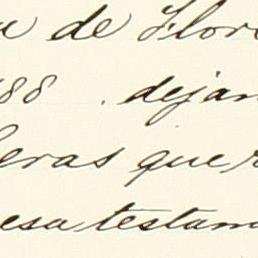 de Flor
88 . dejan
eras que
esa testam